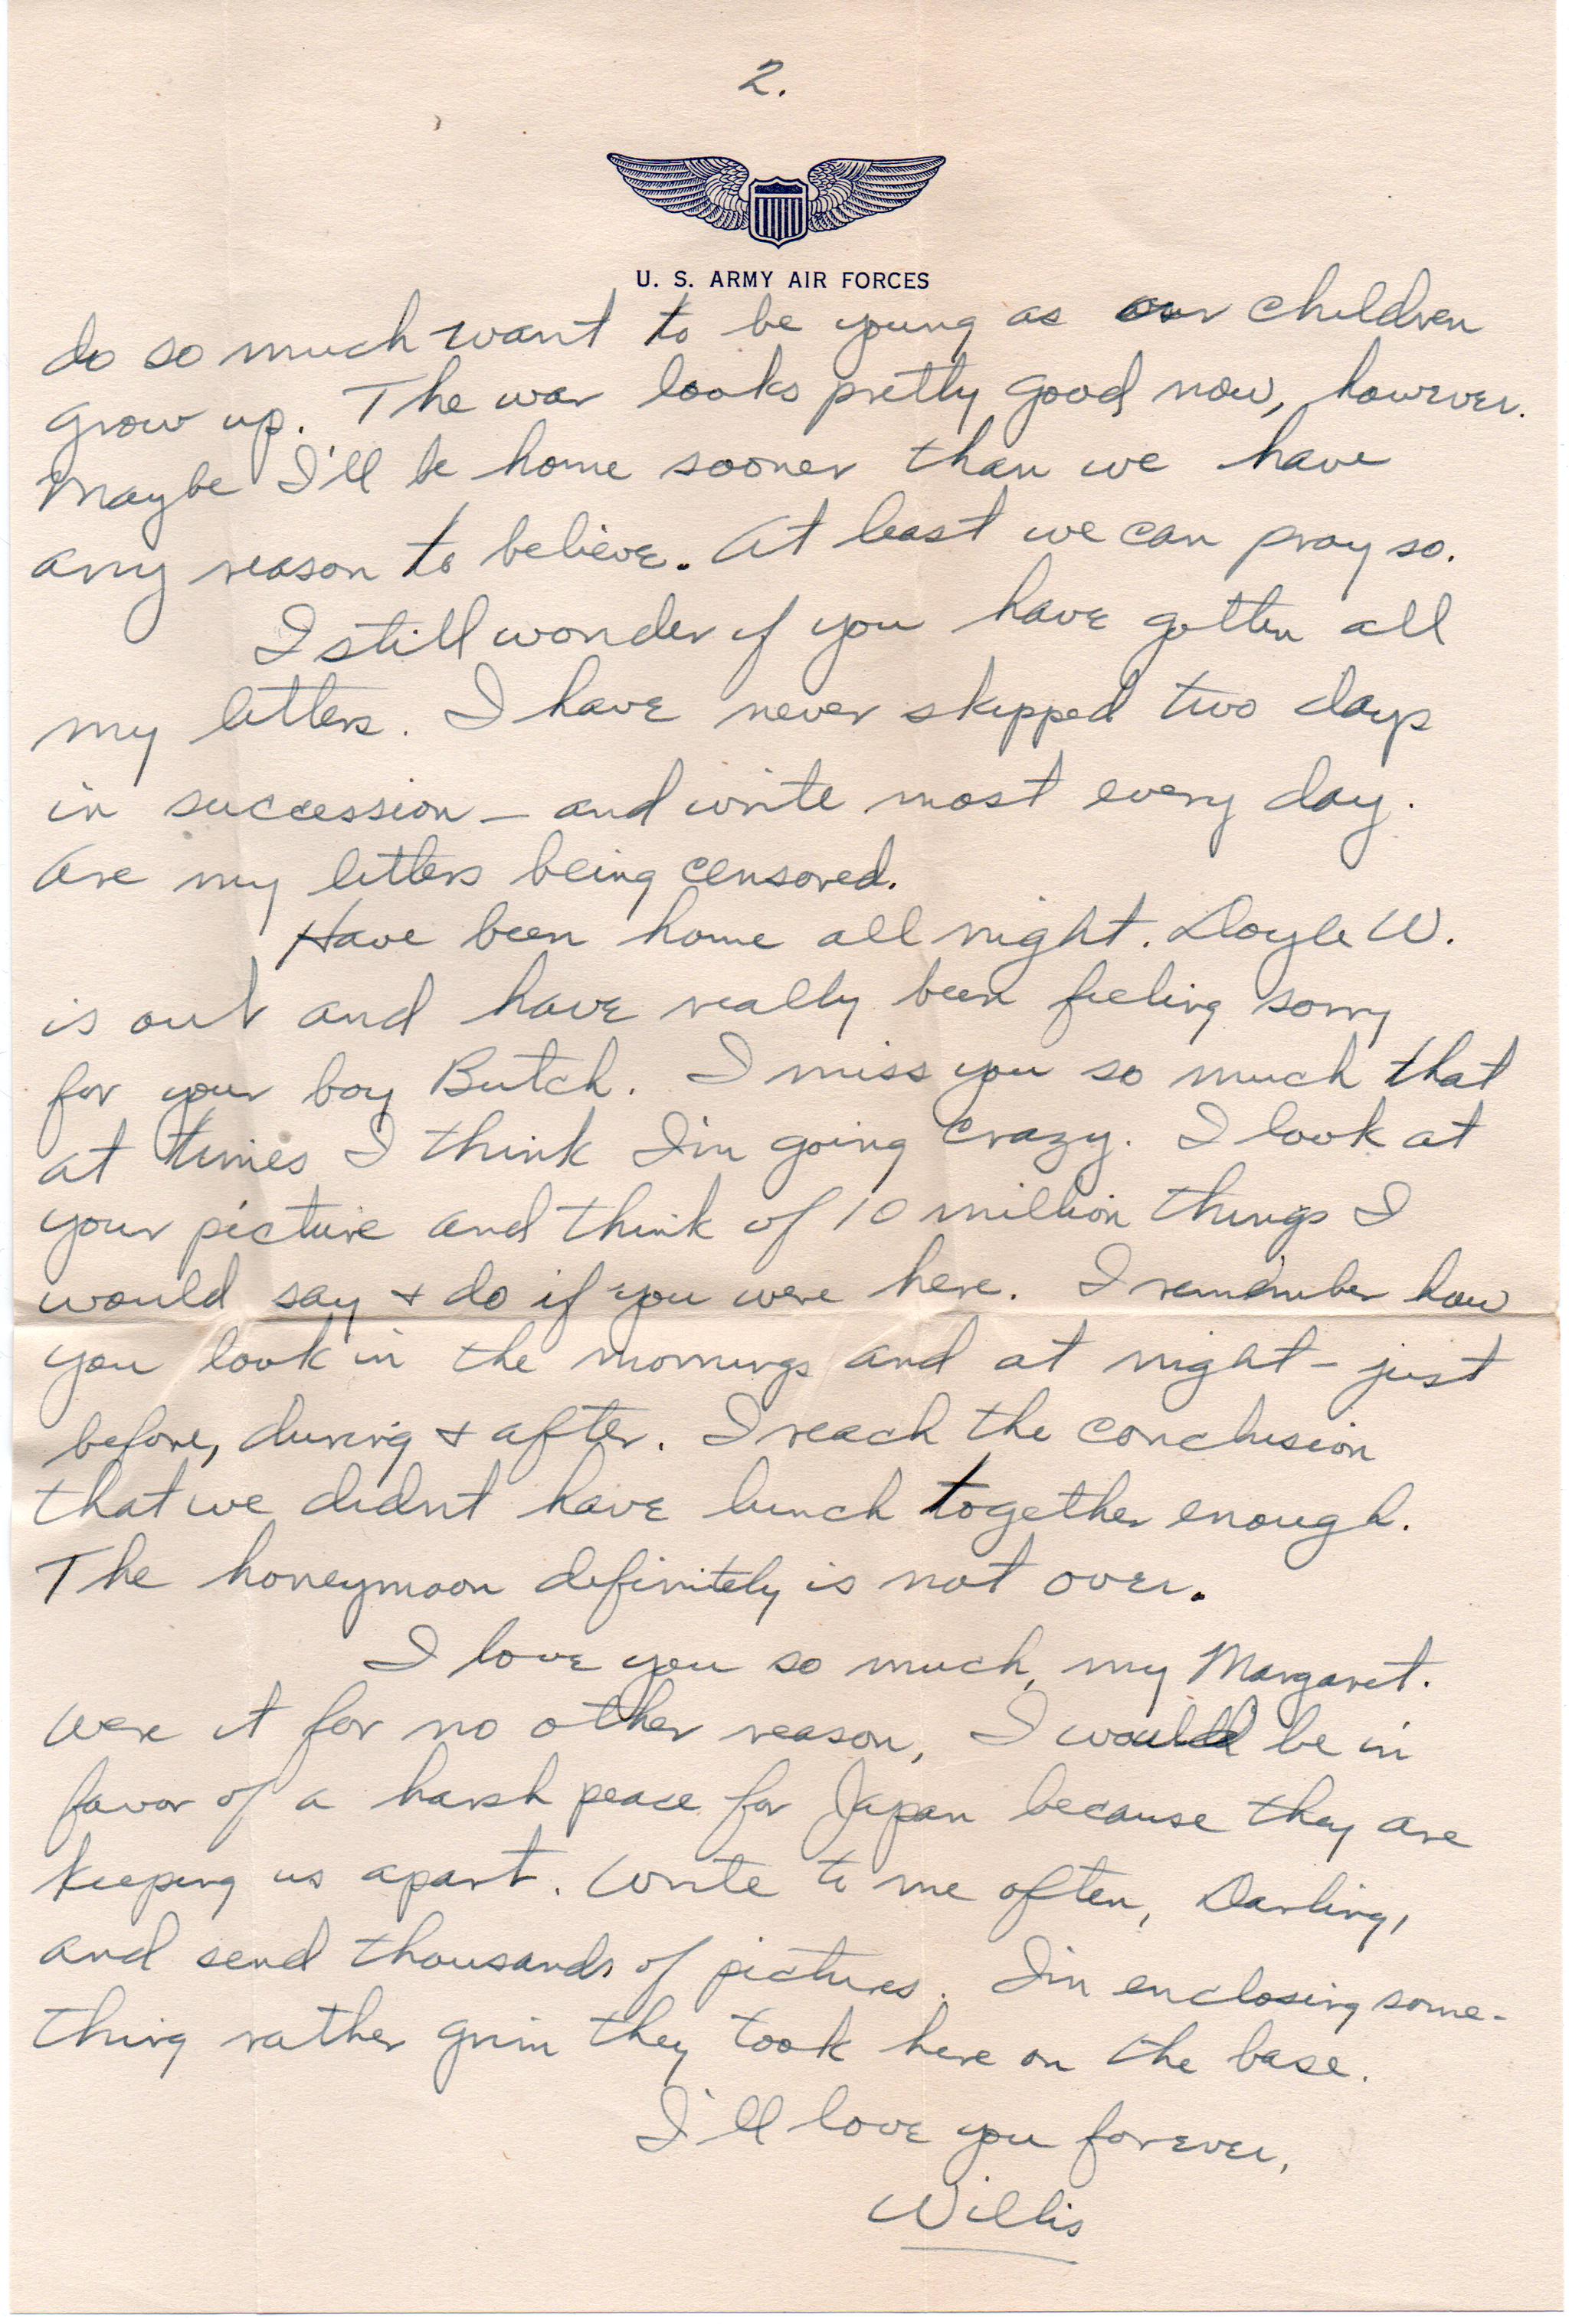 2.
U. S. ARMY AIR FORCES
do so much want to be young as our children
grow up. The war looks pretty good now, however.
Maybe I'll be home sooner than we have
any reason to believe. At least we can pray so.
I still wonder if you have gotten all
my letters. I have never skipped two days
in succession - and write most every day.
Are my letters being censored.
Have been home all night. Doyle W.
is out and have really been feeling sorry
for your boy Butch. I miss you so much that
at times I think I'm going crazy. I look at
your picture and think of 10 million things I
would say + do if you were here. I remember how
you look in the mornings and at night - just
before, during + after. I reach the conclusion
that we didn't have lunch together enough.
The honeymoon definitely is not over.
I love you so much, my Margaret.
Were it for no other reason, I would be in
favor of a harsh peace for Japan because they are
keeping us apart. Write to me often, Darling,
and send thousands of pictures. I'm enclosing some-
thing rather grim they took here on the base.
I'll love you forever,
Willis